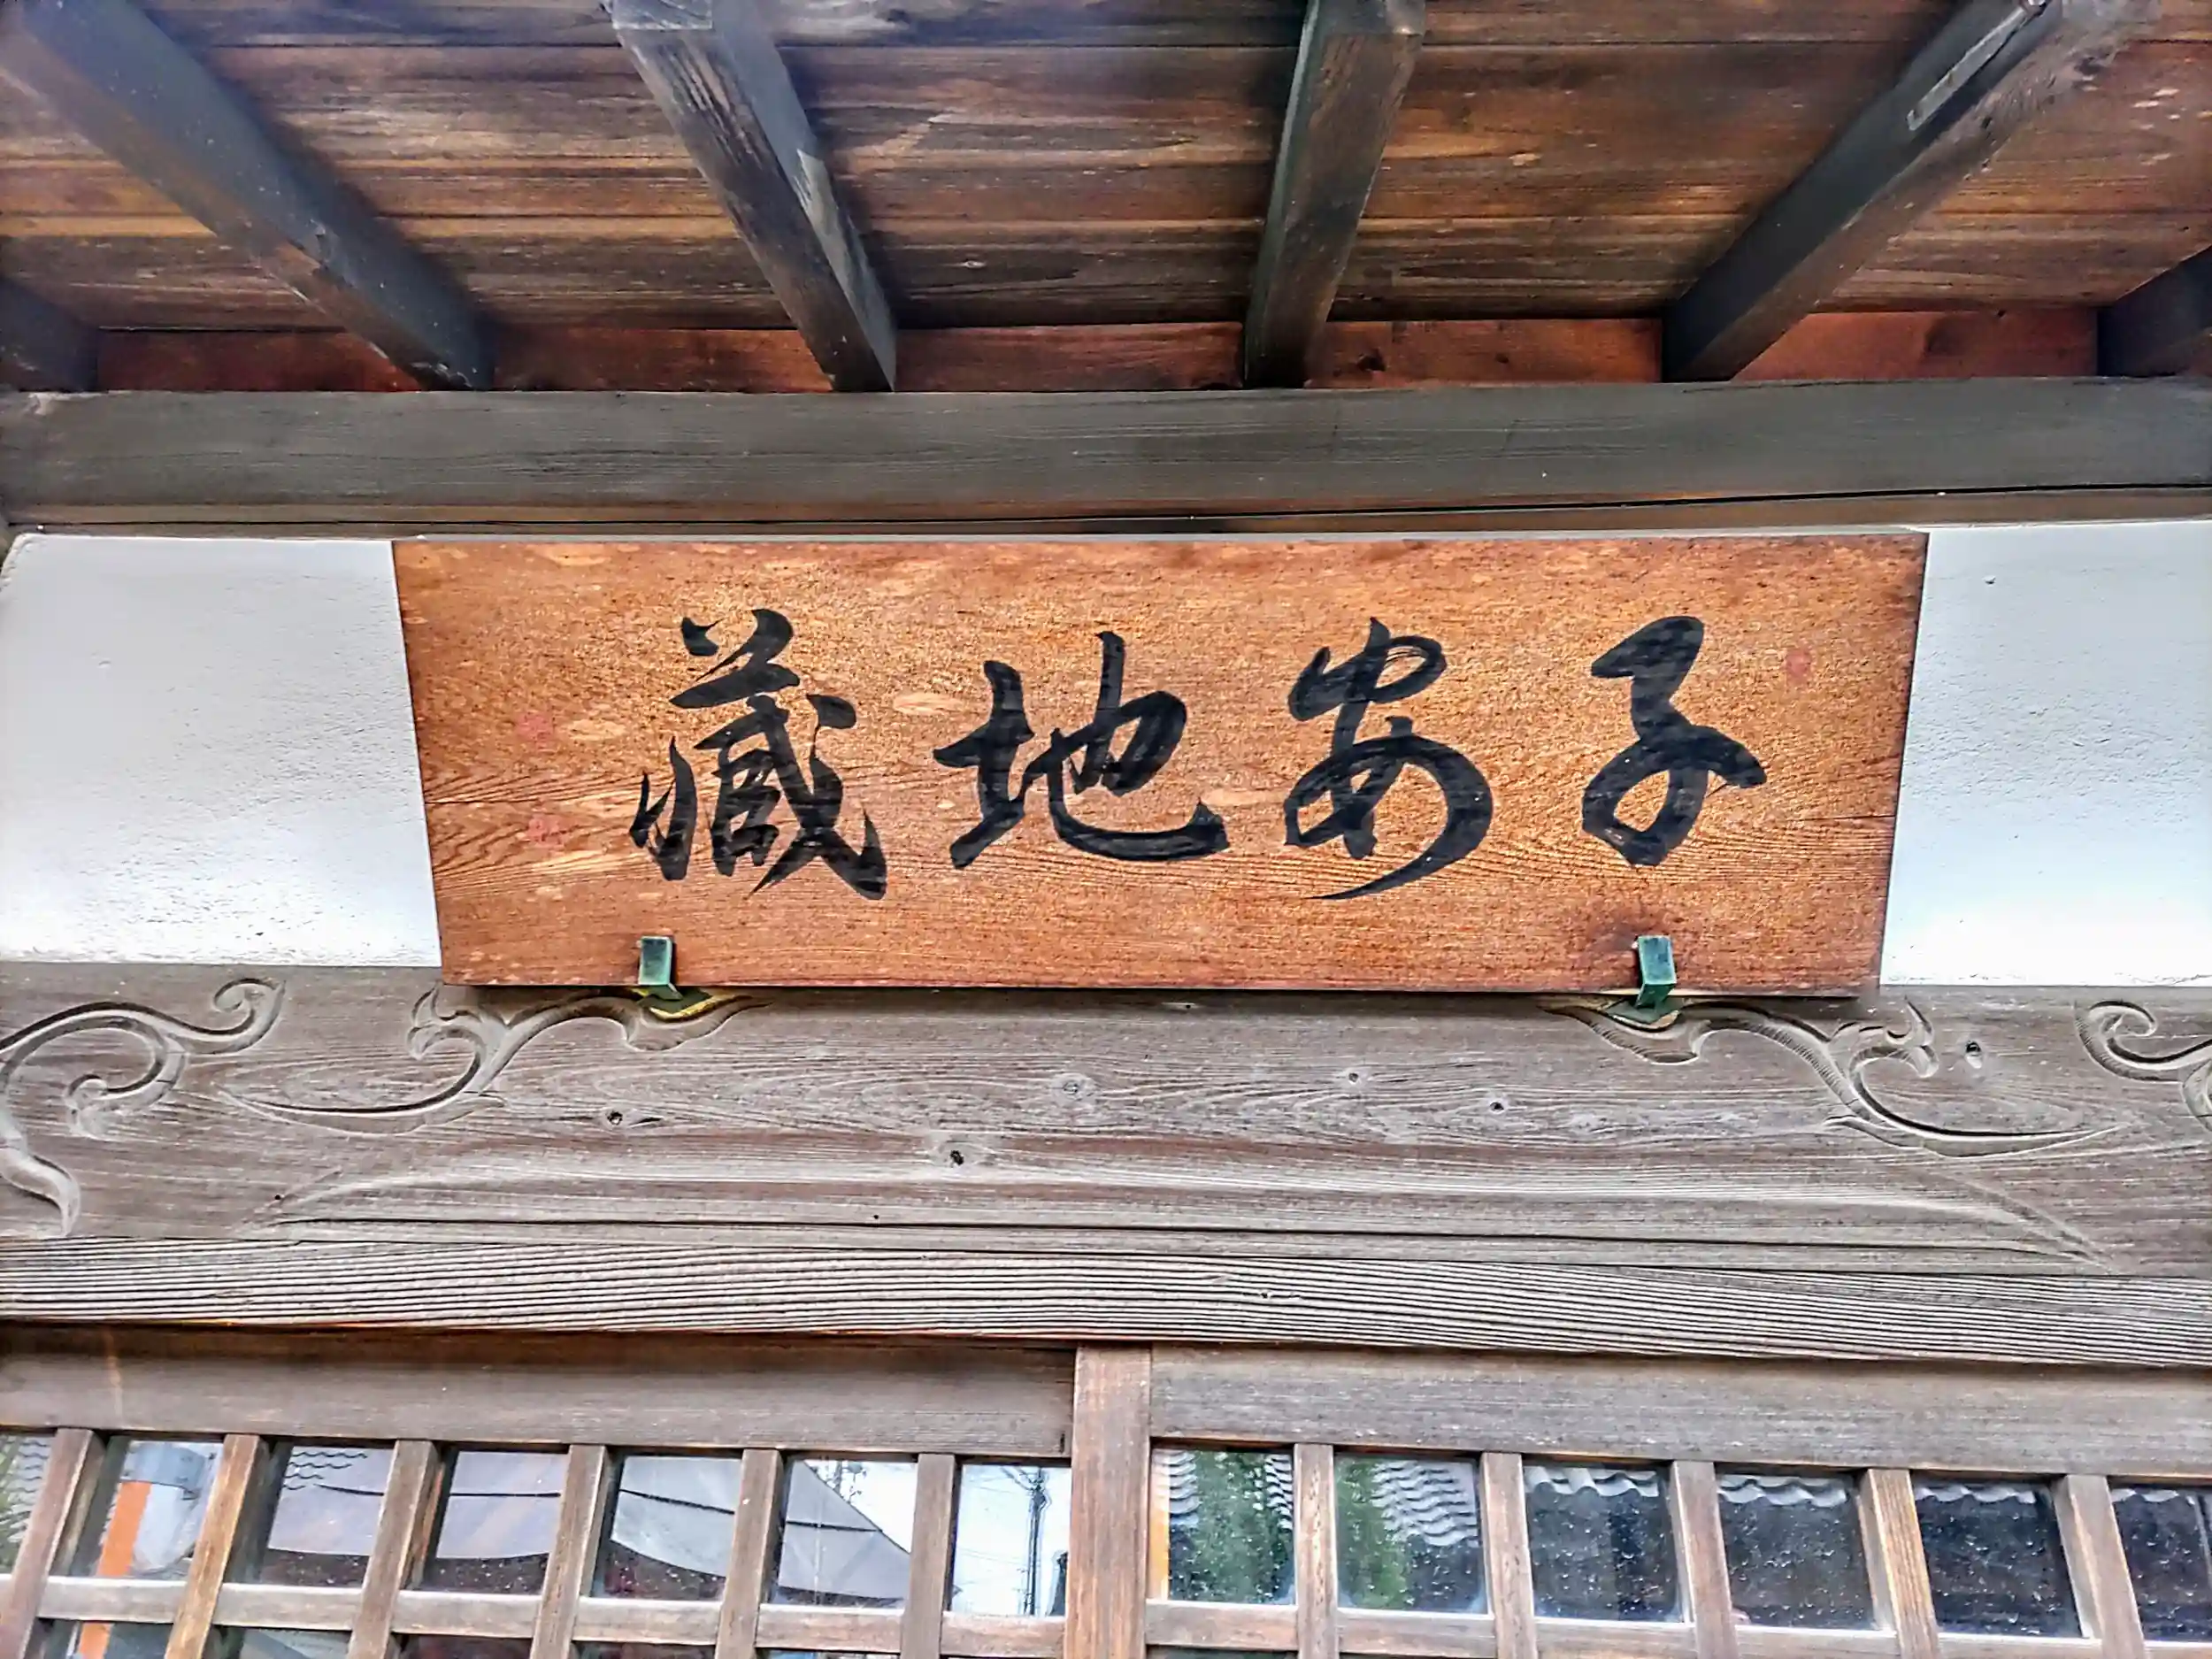 子安地藏